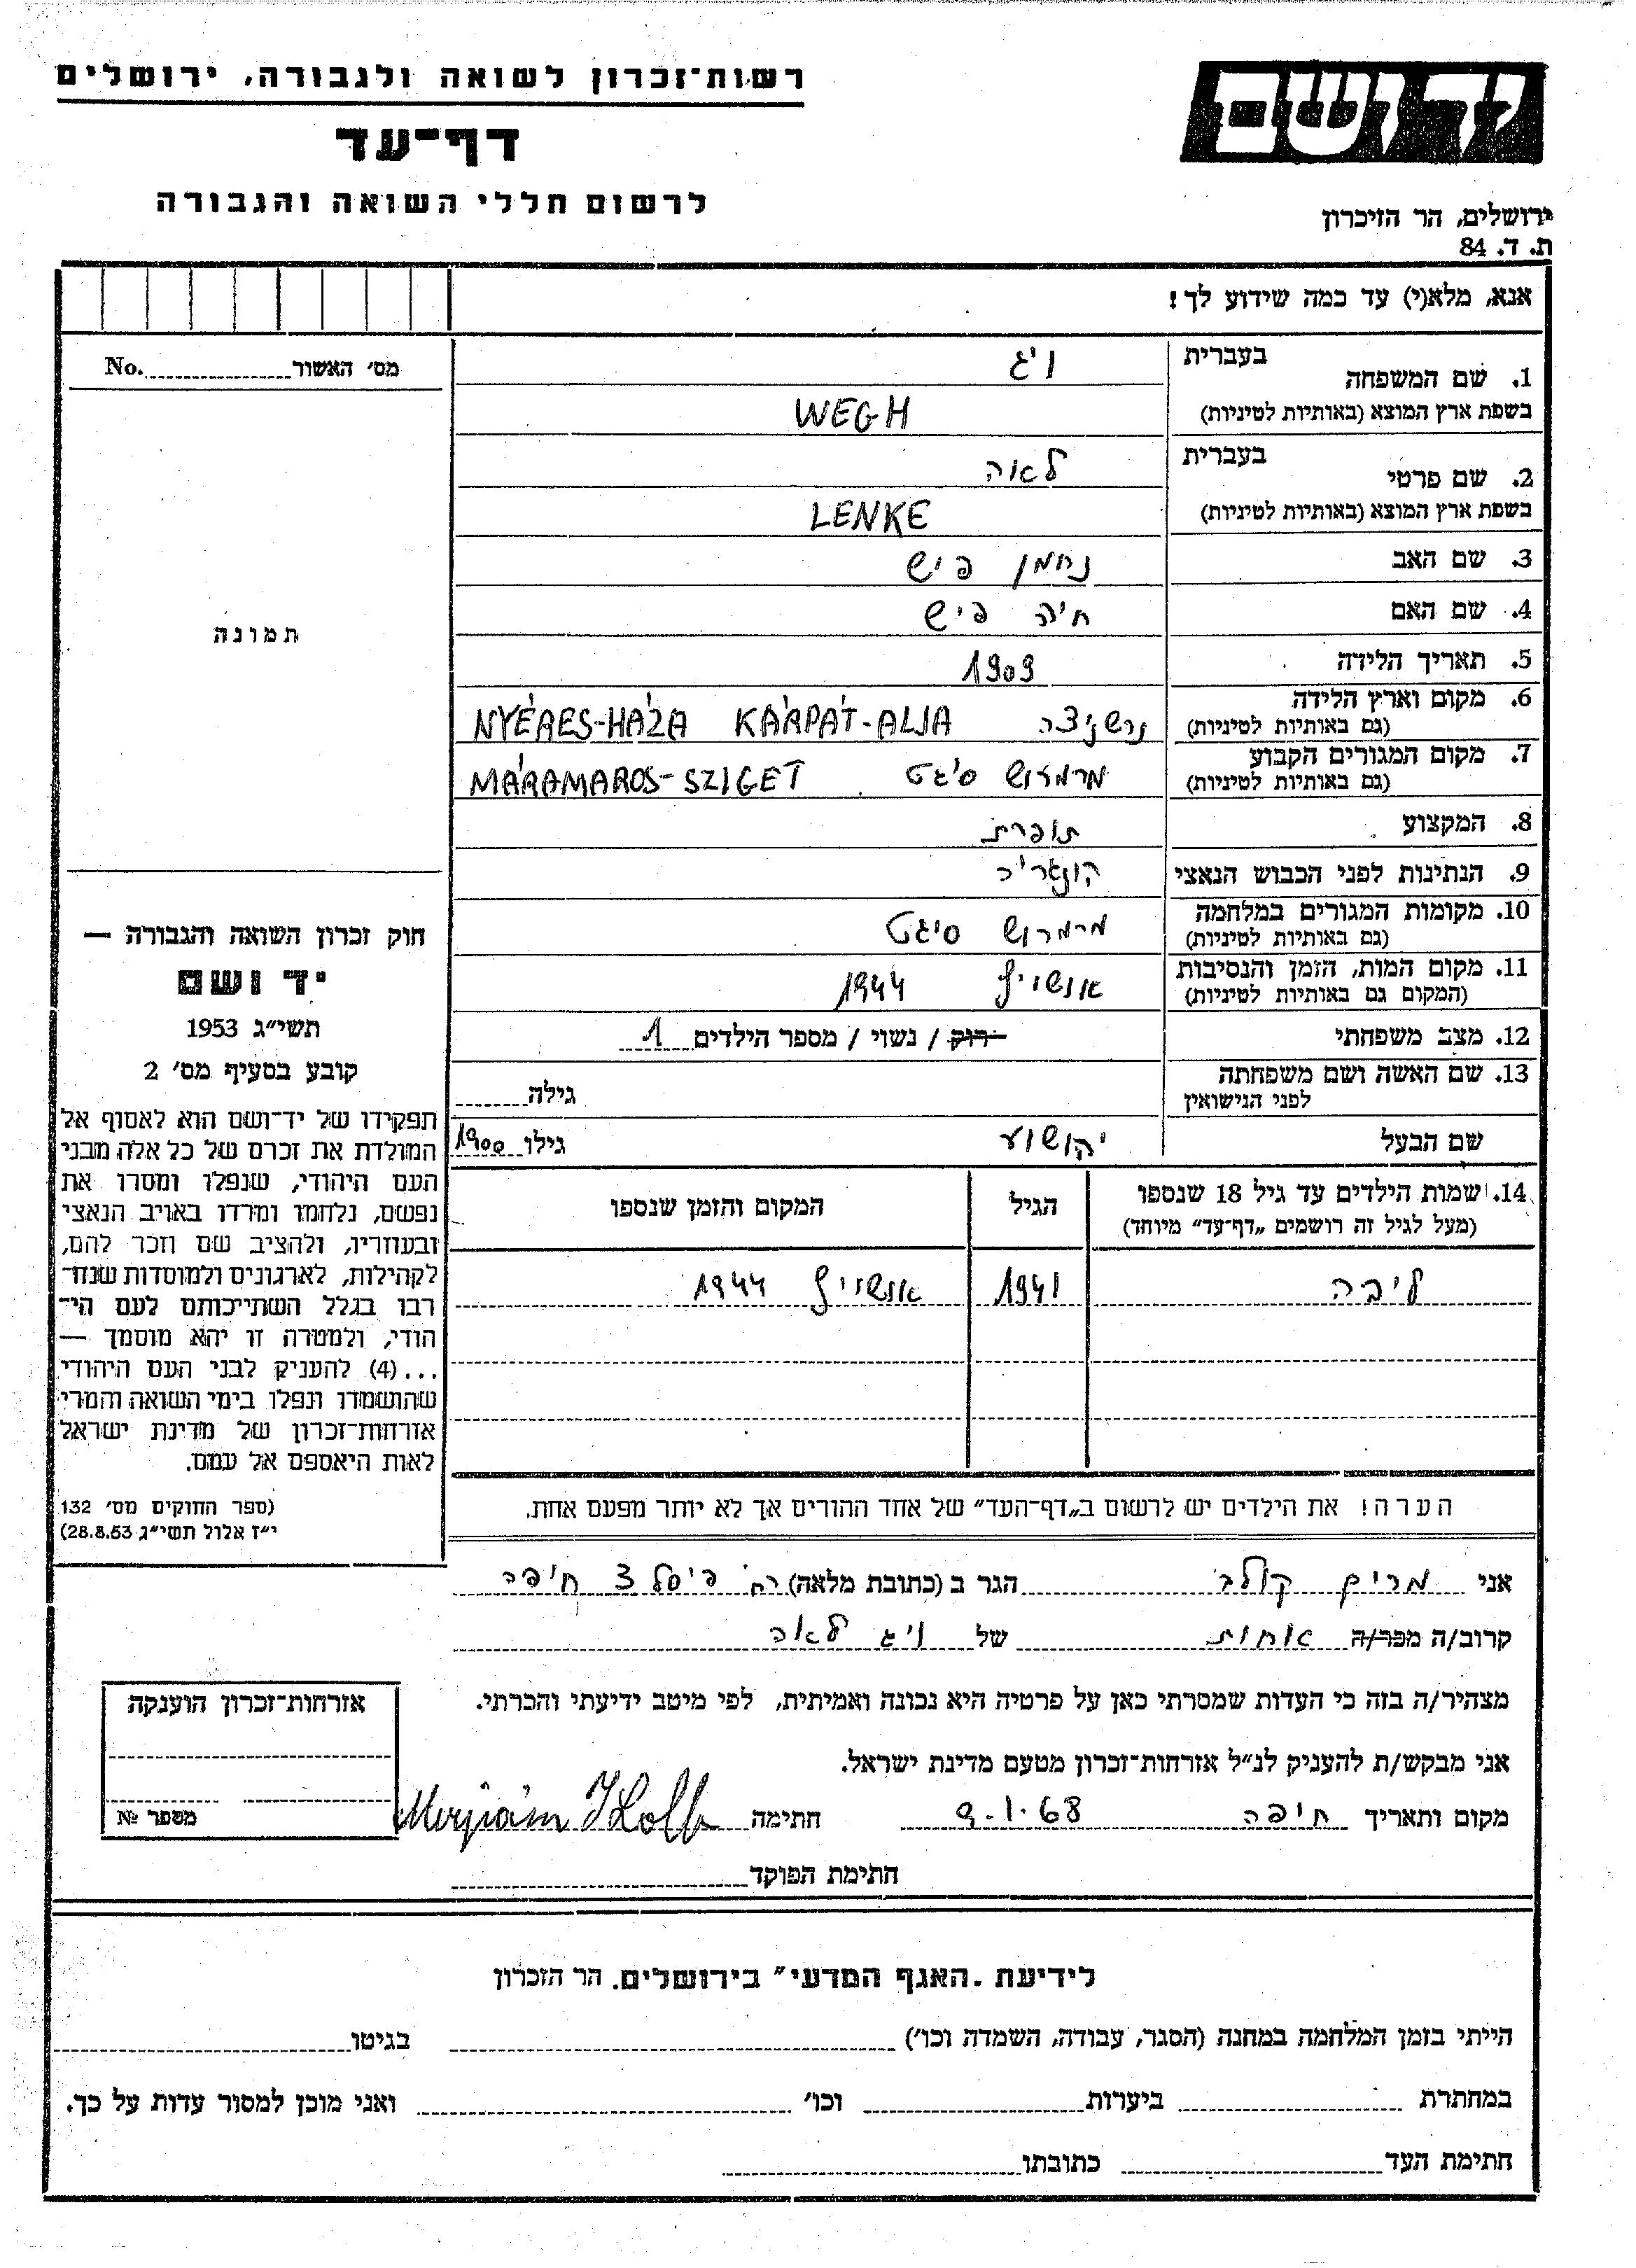 רשות־זכרון לשואה ולגבורה, ירושלים
דף־עד
לרשום חללי השואה והגבורה
יד ושם
ירושלים, הר הזיכרון
ת. ד. 84
אנא, מלא(י) עד כמה שידוע לך!
מס׳ האשור No.
תמונה
1. שם המשפחה בעברית ויג
בשפת ארץ המוצא (באותיות לטיניות) WEGH
2. שם פרטי בעברית לאה
בשפת ארץ המוצא (באותיות לטיניות) LENKE
3. שם האב נחמן פיש
4. שם האם חיה פיש
5. תאריך הלידה 1909
6. מקום וארץ הלידה
(גם באותיות לטיניות) NYÉRES-HÁZA KÁRPÁT-ALJA
7. מקום המגורים הקבוע
(גם באותיות לטיניות) מרמרוש סיגט MÁRAMAROS-SZIGET
8. המקצוע תופרת
9. הנתינות לפני הכבוש הנאצי
10. מקומות המגורים במלחמה
(גם באותיות לטיניות) מרמרוש סיגט
11. מקום המות, הזמן והנסיבות
(המקום גם באותיות לטיניות) אושויץ 1944
12. מצב משפחתי רוק / נשוי / מספר הילדים 1
13. שם האשה ושם משפחתה
לפני הנישואין גילה
שם הבעל יהושוע גילו 1900
14. שמות הילדים עד גיל 18 שנספו
(מעל לגיל זה רושמים „דף־עד” מיוחד)
הגיל
המקום והזמן שנספו
ליבה 1941 אושויץ 1944
הערה! את הילדים יש לרשום ב„דף־העד” של אחד ההורים אך לא יותר מפעם אחת.
חוק זכרון השואה והגבורה —
יד ושם
תשי״ג 1953
קובע בסעיף מס׳ 2
תפקידו של יד־ושם הוא לאסוף אל
המולדת את זכרם של כל אלה מבני
העם היהודי, שנפלו ומסרו את
נפשם, נלחמו ומרדו באויב הנאצי
ובעוזריו, ולהציב שם וזכר להם,
לקהילות, לארגונים ולמוסדות שנח־
רבו בגלל השתייכותם לעם הי־
הודי, ולמטרה זו יהא מוסמך —
...(4) להעניק לבני העם היהודי
שהושמדו ונפלו בימי השואה והמרי
אזרחות־זכרון של מדינת ישראל
לאות היאספם אל עמם.
(ספר החוקים מס׳ 132
י״ז אלול תשי״ג 28.8.53)
אני מרים קולב הגר ב (כתובת מלאה) רח׳ 3 חיפה
קרוב/ה מכר/ה אחות של ויג לאה
מצהיר/ה בזה כי העדות שמסרתי כאן על פרטיה היא נכונה ואמיתית, לפי מיטב ידיעתי והכרתי.
אני מבקש/ת להעניק לנ״ל אזרחות־זכרון מטעם מדינת ישראל.
מקום ותאריך חיפה 9.1.68 חתימה Merjiám Kolb
חתימת הפוקד
אזרחות־זכרון הוענקה
מספר №
לידיעת „האגף המדעי” בירושלים, הר הזכרון
הייתי בזמן המלחמה במחנה (הסגר, עבודה, השמדה וכו׳) בגיטו
במחתרת ביערות וכו׳ ואני מוכן למסור עדות על כך.
חתימת העד כתובתו